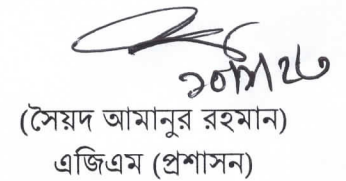 (সৈয়দ আমানুর রহমান)
এজিএম (প্রশাসন)